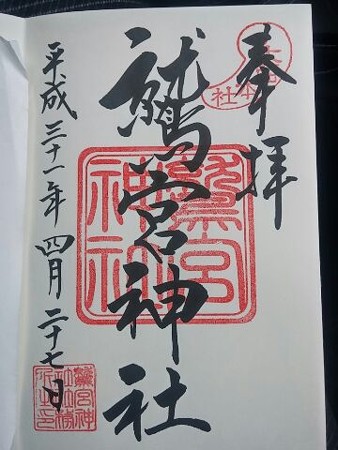 奉拝
鷲宮神社
平成三十一年四月二十七日
鷲宮神社